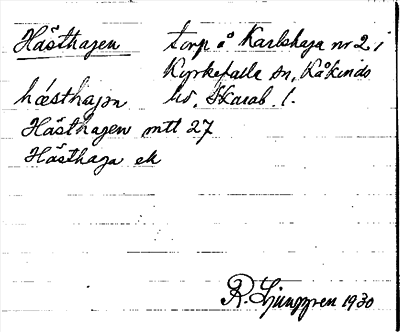 Hästhagen torp å Karlshaga nr 2 i
Kyrkefalla sn, Kåkinds
hd. Skarab. l.
hǽsthaʒən
Hästhagen mtl 27
Hästhaga ek
R. Ljunggren 1930